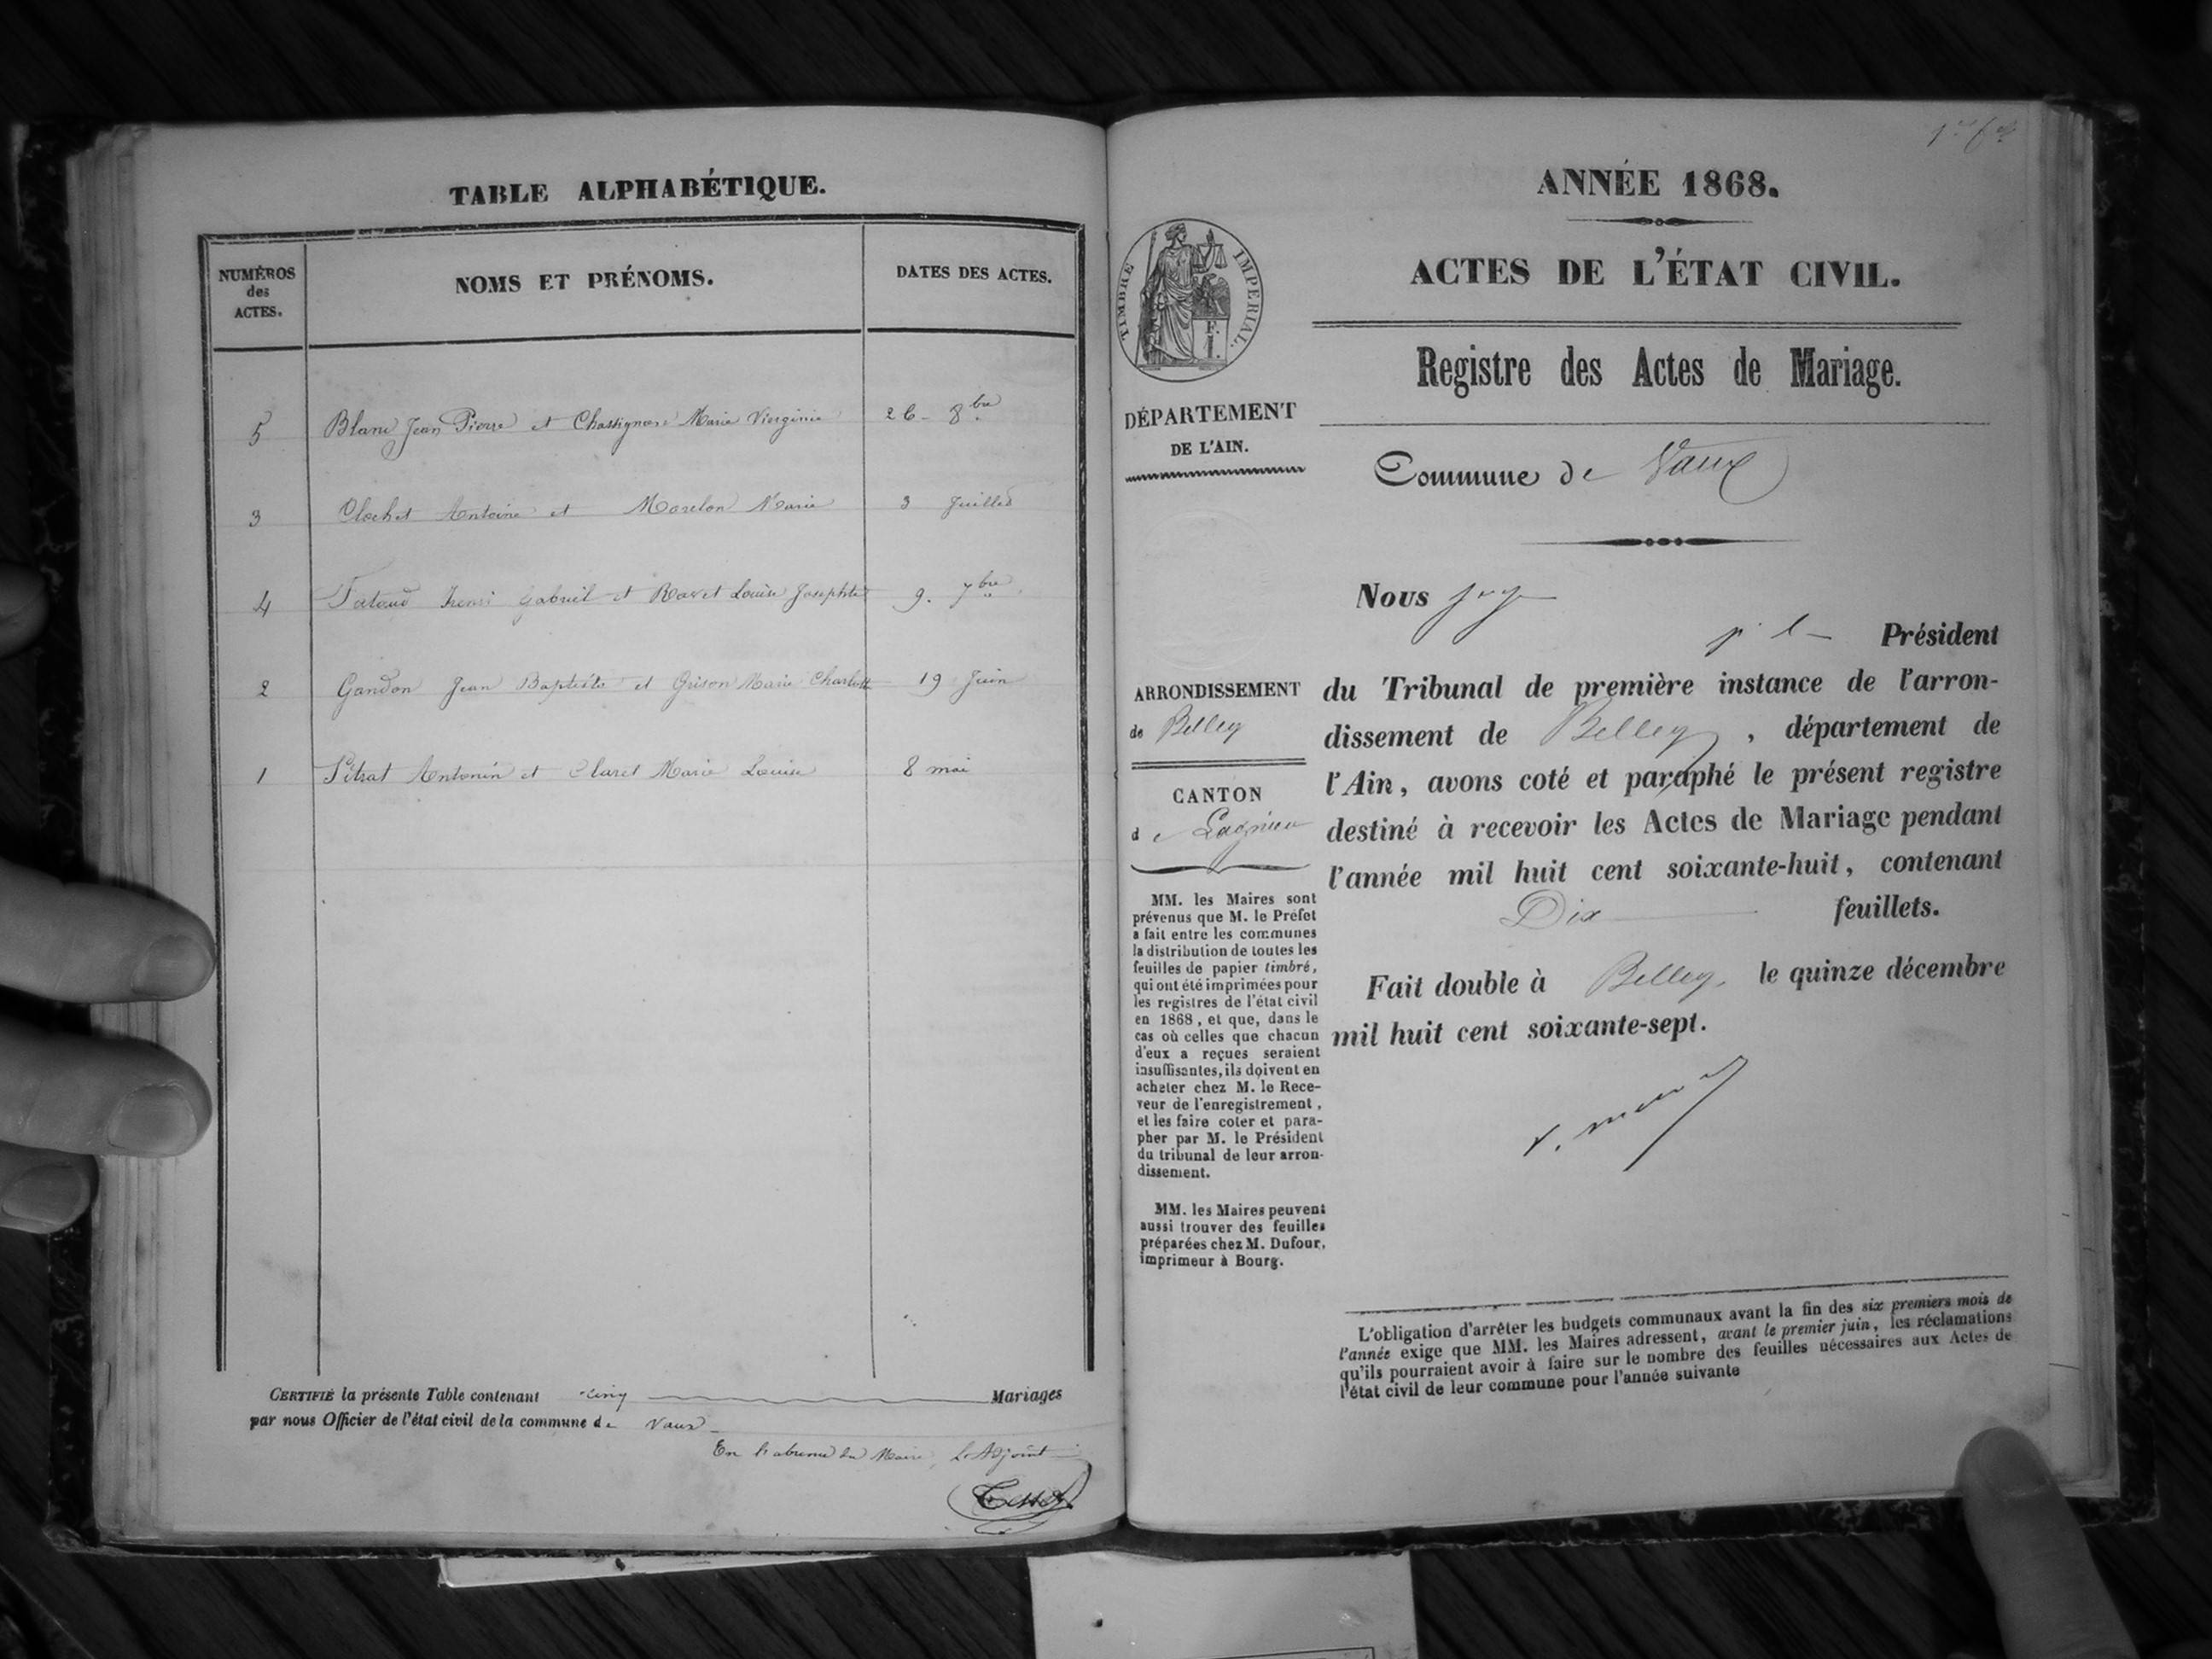 TABLE ALPHABÉTIQUE.
NUMÉROS des ACTES.
NOMS ET PRÉNOMS.
DATES DES ACTES.
5 Blanc Jean Pierre et Marie Vierginie 26 - 8bre
3 Clochet Antoine et Morelon Marie 3 Juillet
4 Henri Gabriel et Ravet Louise Josephte 9. 7bre
2 Gandon Jean Baptiste et Grison Marie Charlotte 19 Juin
1 Pitrat Antonin et Claret Marie Louise 8 mai
CERTIFIÉ la présente Table contenant cinq Mariages
par nous Officier de l'état civil de la commune de Vaux
En l'absence du Maire, L'Adjoint
1er
ANNÉE 1868.
ACTES DE L'ÉTAT CIVIL.
Registre des Actes de Mariage.
TIMBRE IMPERIAL.
DÉPARTEMENT
DE L'AIN.
Commune de Vaux
Nous juge
Président
du Tribunal de première instance de l'arron-
dissement de Belley, département de
l'Ain, avons coté et paraphé le présent registre
destiné à recevoir les Actes de Mariage pendant
l'année mil huit cent soixante-huit, contenant
Dix feuillets.
Fait double à Belley, le quinze décembre
mil huit cent soixante-sept.
ARRONDISSEMENT
de Belley
CANTON
de Lagnieu
MM. les Maires sont
prévenus que M. le Préfet
a fait entre les communes
la distribution de toutes les
feuilles de papier timbré,
qui ont été imprimées pour
les registres de l'état civil
en 1868, et que, dans le
cas où celles que chacun
d'eux a reçues seraient
insuffisantes, ils doivent en
acheter chez M. le Rece-
veur de l'enregistrement,
et les faire coter et para-
pher par M. le Président
du tribunal de leur arron-
dissement.
MM. les Maires peuvent
aussi trouver des feuilles
préparées chez M. Dufour,
imprimeur à Bourg.
L'obligation d'arrêter les budgets communaux avant la fin des six premiers mois de
l'année exige que MM. les Maires adressent, avant le premier juin, les réclamations
qu'ils pourraient avoir à faire sur le nombre des feuilles nécessaires aux Actes de
l'état civil de leur commune pour l'année suivante